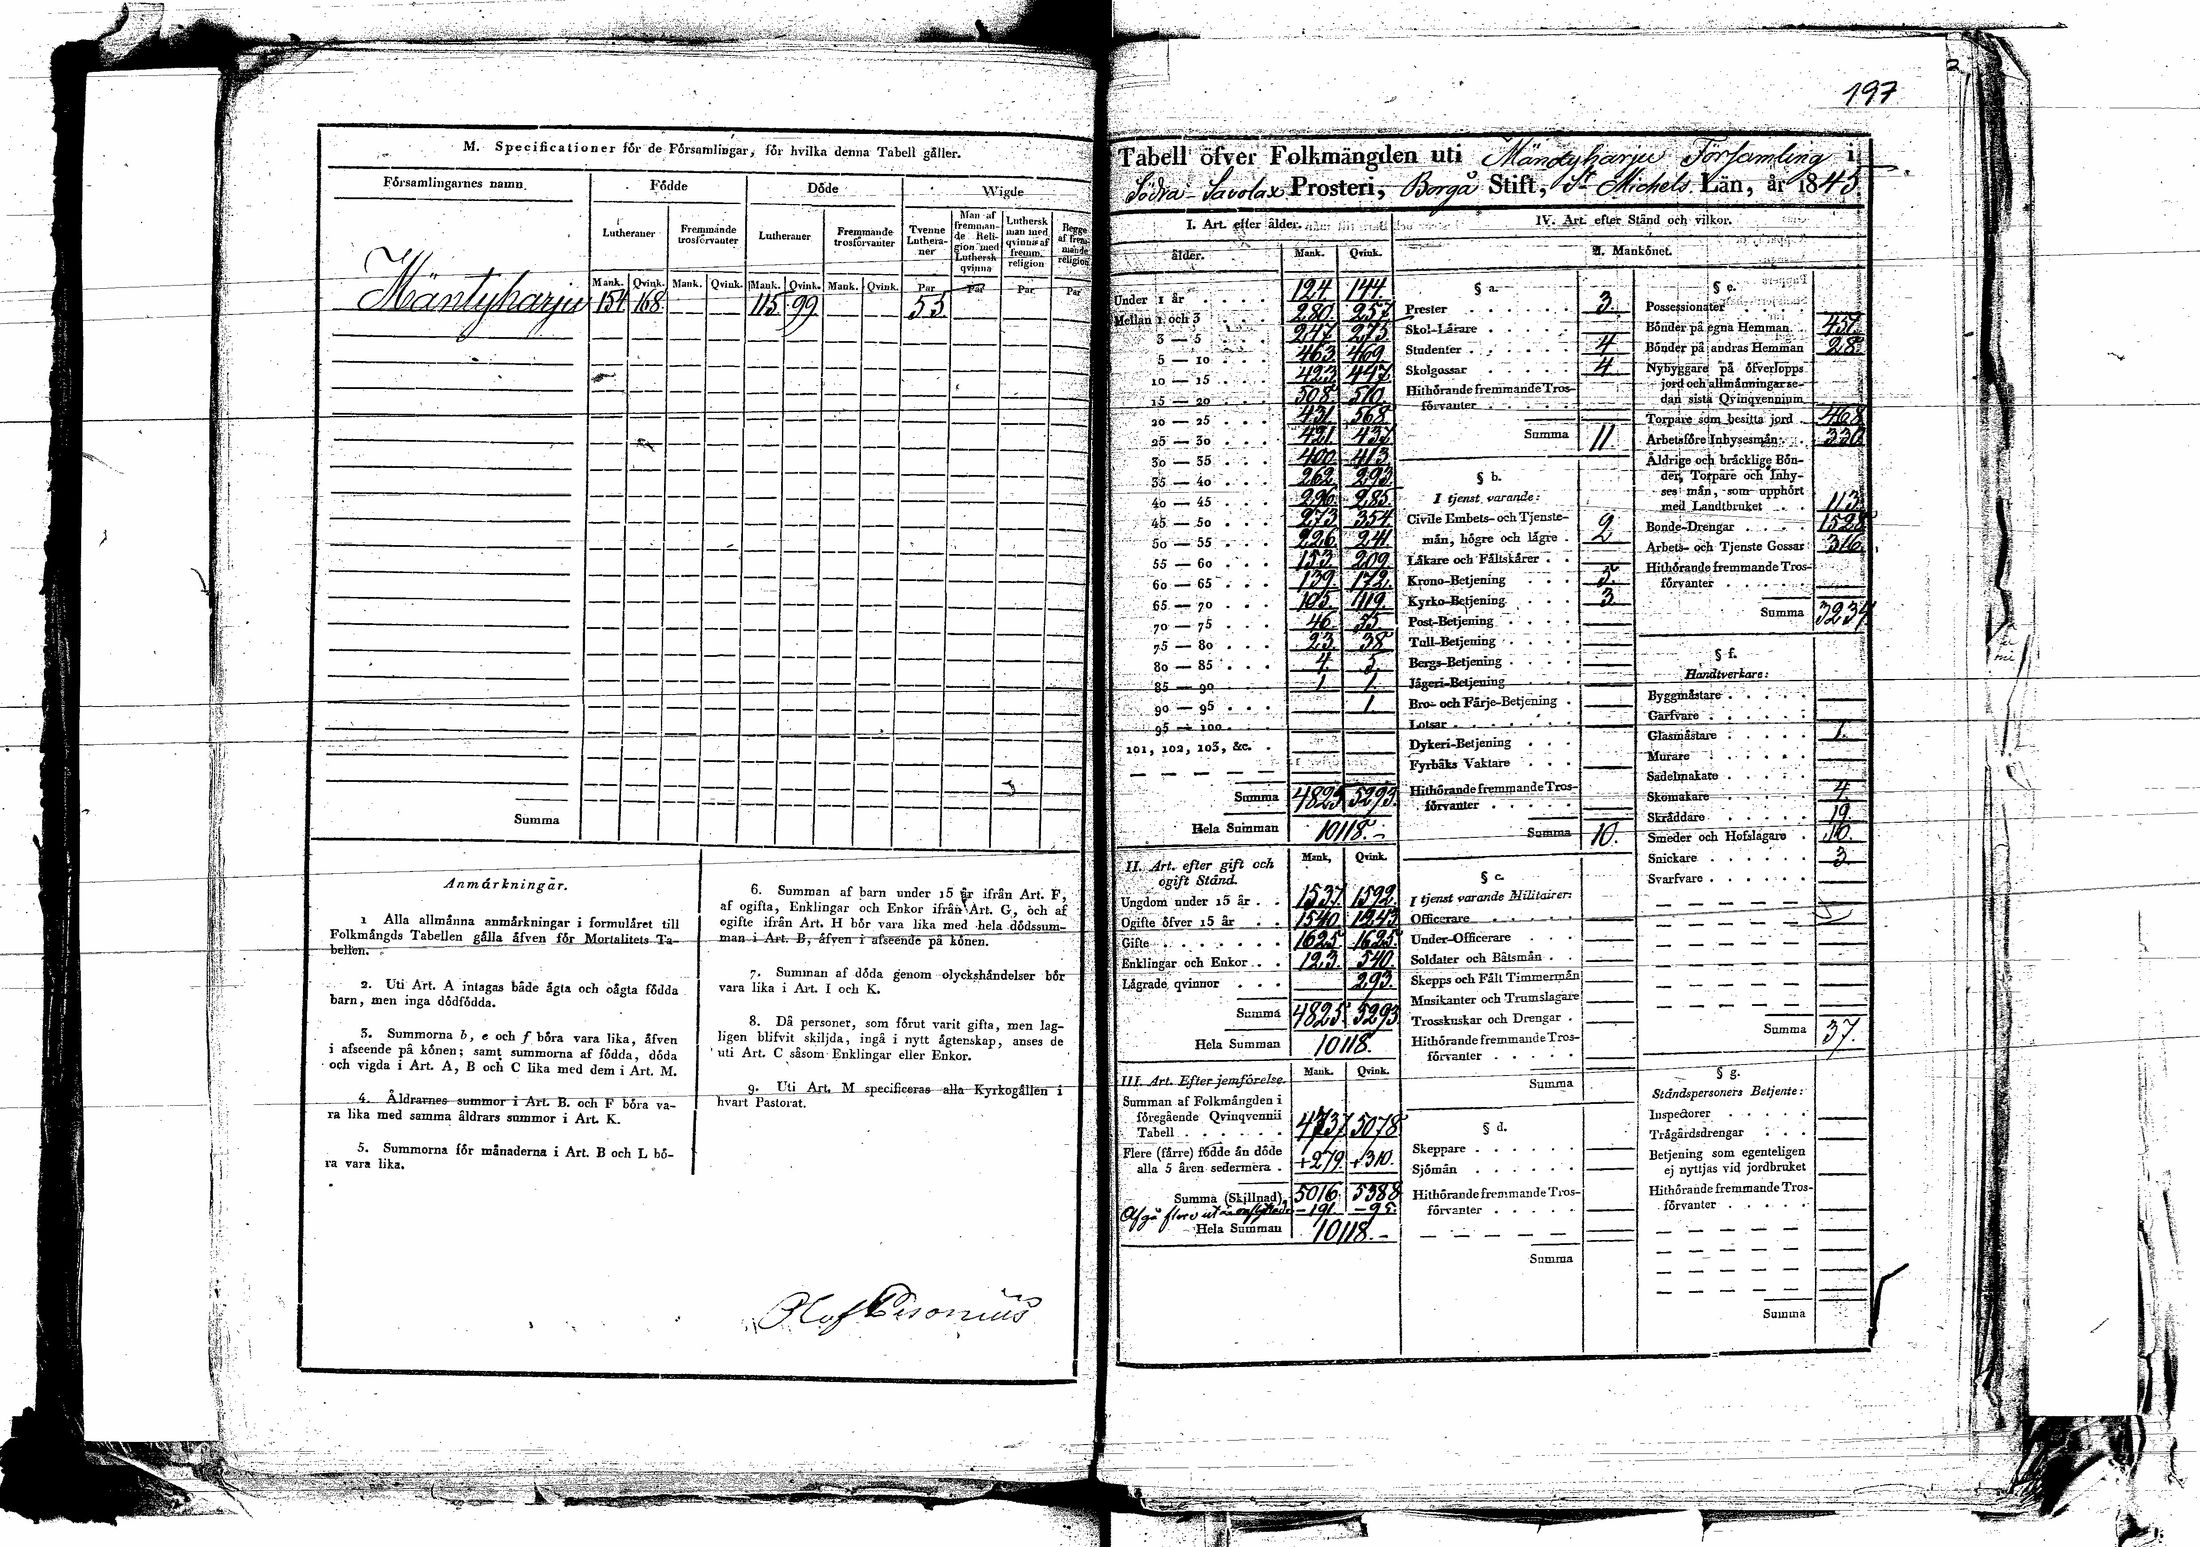 M. Specificationer för de Församlingar, för hvilka denna Tabell gäller.
Församlingarnes namn. Födde Döde Wigde
Lutheraner Fremmande trosförvanter Lutheraner Fremmande trosförvanter Tvenne Lutheraner Man af fremmande Religion med Luthersk qvinna Luthersk man med qvinna af fremm. religion Begge af fremmande religion
Mank. Qvink. Mank. Qvink. Mank. Qvink. Mank. Qvink. Par Par Par Par
Mäntyharju 154 168 — — 115 99 — — 53
Summa
Anmärkningar.
1 Alla allmänna anmärkningar i formuläret till
Folkmängds Tabellen gälla äfven för Mortalitets Ta-
bellen.
2. Uti Art. A intagas både ägta och oägta födda
barn, men inga dödfödda.
3. Summorna b, e och f böra vara lika, äfven
i afseende på könen; samt summorna af födda, döda
och vigda i Art. A, B och C lika med dem i Art. M.
4. Åldrarnes summor i Art. B. och F böra va-
ra lika med samma åldrars summor i Art. K.
5. Summorna för månaderna i Art. B och L bö-
ra vara lika.
6. Summan af barn under 15 år ifrån Art. F,
af ogifta, Enklingar och Enkor ifrån Art. G, och af
ogifte ifrån Art. H bör vara lika med hela dödssum-
man i Art. B, äfven i afseende på könen.
7. Summan af döda genom olyckshändelser bör
vara lika i Art. I och K.
8. Då personer, som förut varit gifta, men lag-
ligen blifvit skiljda, ingå i nytt ägtenskap, anses de
uti Art. C såsom Enklingar eller Enkor.
9. Uti Art. M specificeras alla Kyrkogällen i
hvart Pastorat.
197
Tabell öfver Folkmängden uti Mändyharju Församling i
Södra Savolax Prosteri, Borgå Stift, St Michels Län, år 1845.
I. Art. efter ålder.
ålder. Mank. Qvink.
Under 1 år 124 144
Mellan 1 och 3 280 257
3 — 5 247 275
5 — 10 463 469
10 — 15 423 447
15 — 20 508 510
20 — 25 431 568
25 — 30 421 437
30 — 35 400 413
35 — 40 262 293
40 — 45 296 285
45 — 50 273 354
50 — 55 226 241
55 — 60 153 209
60 — 65 139 172
65 — 70 105 119
70 — 75 46 55
75 — 80 23 38
80 — 85 4 5
85 — 90 1 1
90 — 95 1
95 — 100
101, 102, 103, &c.
Summa 4825 5293
Hela Summan 10118.
II. Art. efter gift och
ogift Stånd. Mank. Qvink.
Ungdom under 15 år 1537 1592
Ogifte öfver 15 år 1540 1243
Gifte 1625 1625
Enklingar och Enkor 123 540
Lägrade qvinnor 293
Summa 4825 5293
Hela Summan 10118.
III. Art. Efter jemförelse. Mank. Qvink.
Summan af Folkmängden i
föregående Qvinqvennii
Tabell 4737 5078
Flere (färre) födde än döde
alla 5 åren sedermera +279 +310
Summa (Skillnad) 5016 5388
Afgå flere ut än inflyttade -191 -95
Hela Summan 10118.
IV. Art. efter Stånd och vilkor.
1. Mankönet.
§ a.
Prester 3.
Skol-Lärare
Studenter 4
Skolgossar 4
Hithörande fremmande Tros-
förvanter
Summa 11.
§ b.
I tjenst varande:
Civile Embets- och Tjenste-
män, högre och lägre 2
Läkare och Fältskärer
Krono-Betjening 5.
Kyrko-Betjening 3.
Post-Betjening
Tull-Betjening
Bergs-Betjening
Jägeri-Betjening
Bro- och Färje-Betjening
Lotsar
Dykeri-Betjening
Fyrbåks Vaktare
Hithörande fremmande Tros-
förvanter
Summa 10.
§ c.
I tjenst varande Militairer:
Officerare
Under-Officerare
Soldater och Båtsmän
Skepps och Fält Timmermän
Musikanter och Trumslagare
Trosskuskar och Drengar
Hithörande fremmande Tros-
förvanter
Summa
§ d.
Skeppare
Sjömän
Hithörande fremmande Tros-
förvanter
Summa
§ e.
Possessionater
Bönder på egna Hemman 457
Bönder på andras Hemman 28
Nybyggare på öfverlopps
jord och allmänningar se-
dan sista Qvinqvennium
Torpare som besitta jord 468
Arbetsföre Inhysesmän 330
Åldrige och bräcklige Bön-
der, Torpare och Inhy-
ses män, som upphört
med Landtbruket 113
Bonde-Drengar 1525
Arbets- och Tjenste Gossar 316
Hithörande fremmande Tros-
förvanter
Summa 3237
§ f.
Handtverkare:
Byggmästare
Garfvare
Glasmästare 1.
Murare
Sadelmakare
Skomakare 4
Skräddare 19.
Smeder och Hofslagare 10.
Snickare 3
Svarfvare
Summa 37.
§ g.
Ståndspersoners Betjente:
Inspector
Trägårdsdrengar
Betjening som egenteligen
ej nyttjas vid jordbruket
Hithörande fremmande Tros-
förvanter
Summa